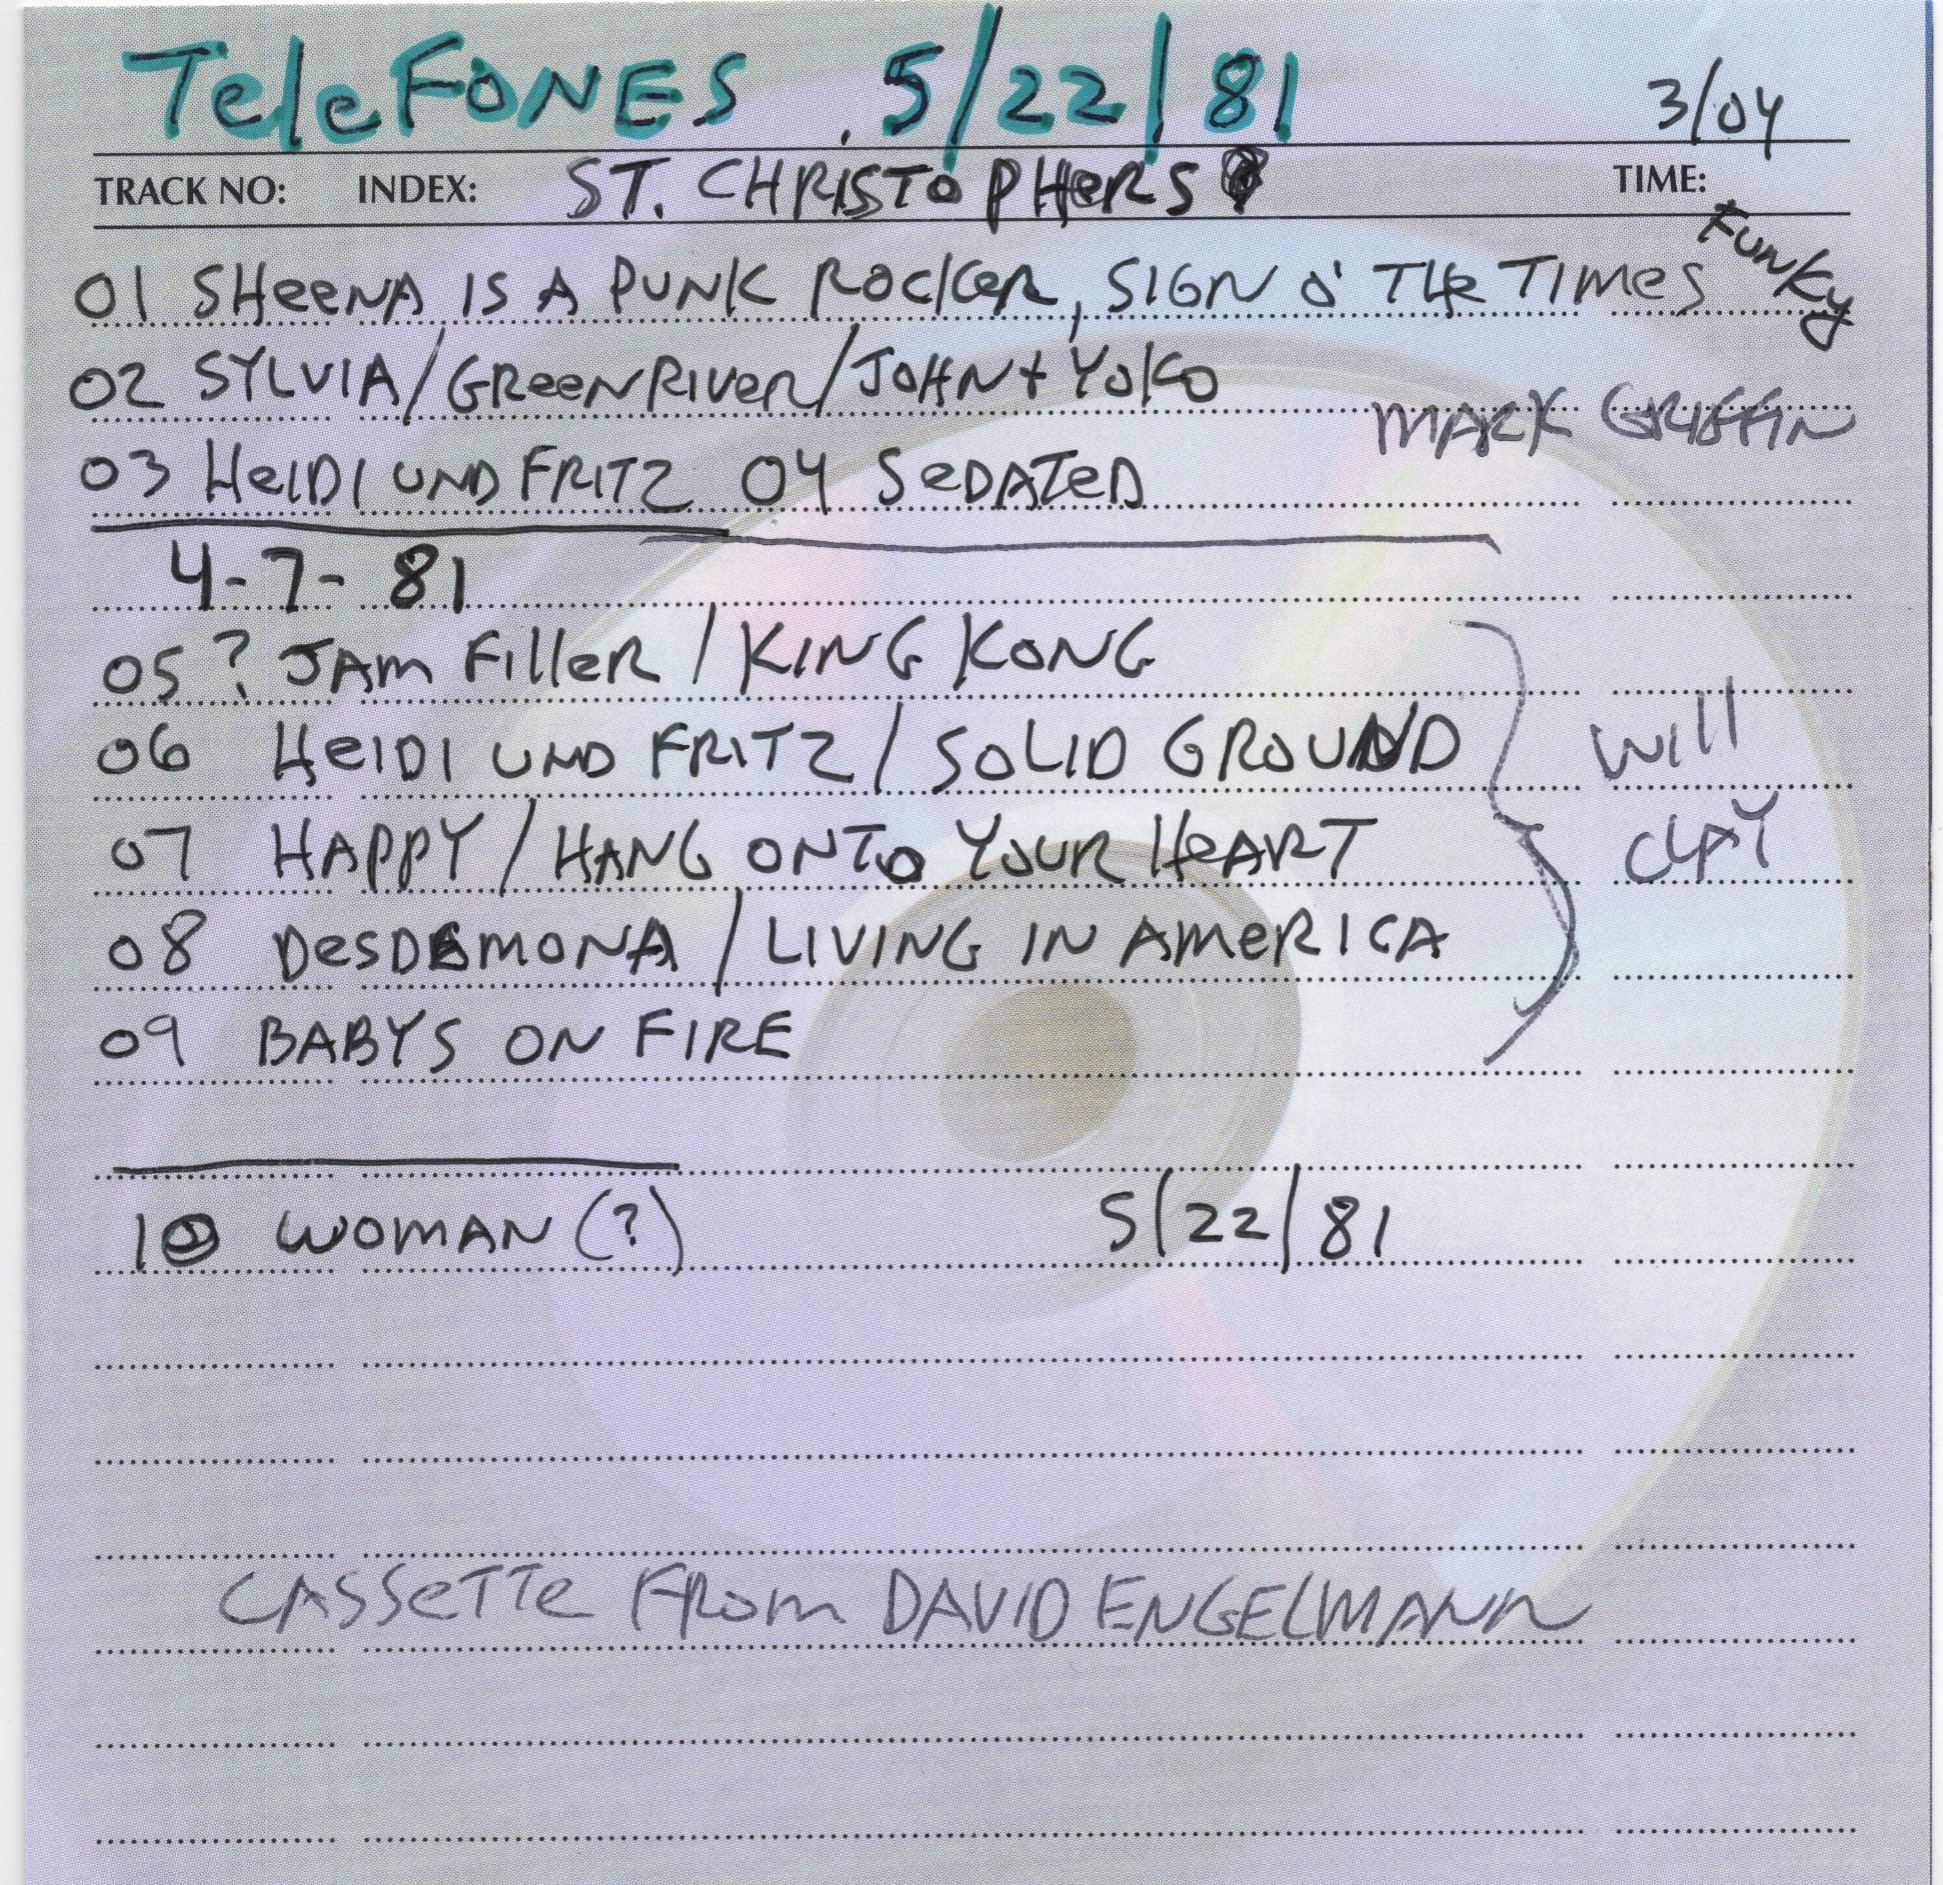 TeleFONES . 5/22/81 3/04
TRACK NO: INDEX: ST. CHRISTOPHERS TIME:
01 SHeeNA IS A PUNK ROCKeR, SIGN O' THe TIMeS FUNKy
02 SYLVIA/GReeNRIVeR/JOHN + YOKO
MARK GRIFFIN
03 HeIDI UND FRITZ 04 SeDATeD
4-7-81
05 ? JAM FilleR / KING KONG
06 HeIDI UND FRITZ / SOLID GROUND
Will
07 HAPPY / HANG ONTO YOUR HeART
ClAY
08 DeSDAMONA / LIVING IN AMeRICA
09 BABYS ON FIRE
10 WOMAN (?) 5/22/81
CASSeTTe FRom DAVID ENGELMANN